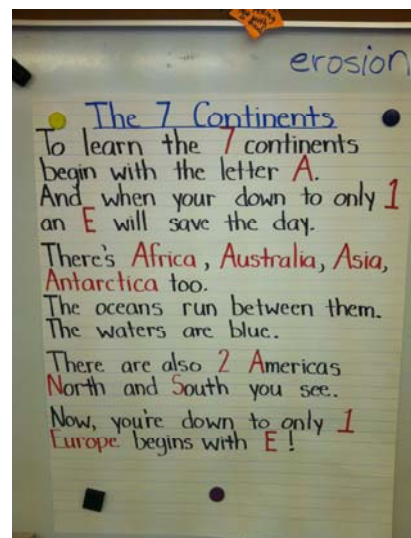 erosion
The 7 Continents
To learn the 7 continents
begin with the letter A.
And when your down to only 1
an E will save the day.
There's Africa, Australia, Asia,
Antarctica too.
The oceans run between them.
The waters are blue.
There are also 2 Americas
North and South you see.
Now, you're down to only 1
Europe begins with E!